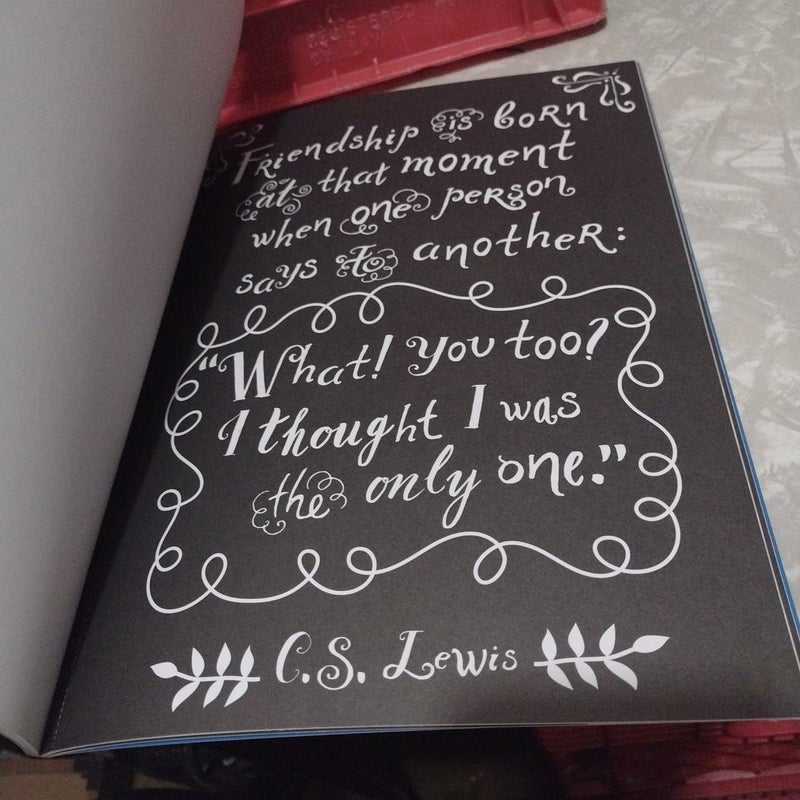 REGISTERED
Friendship is born
at that moment
when one person
says to another:
"What! You too?
I thought I was
the only one."
C.S. Lewis